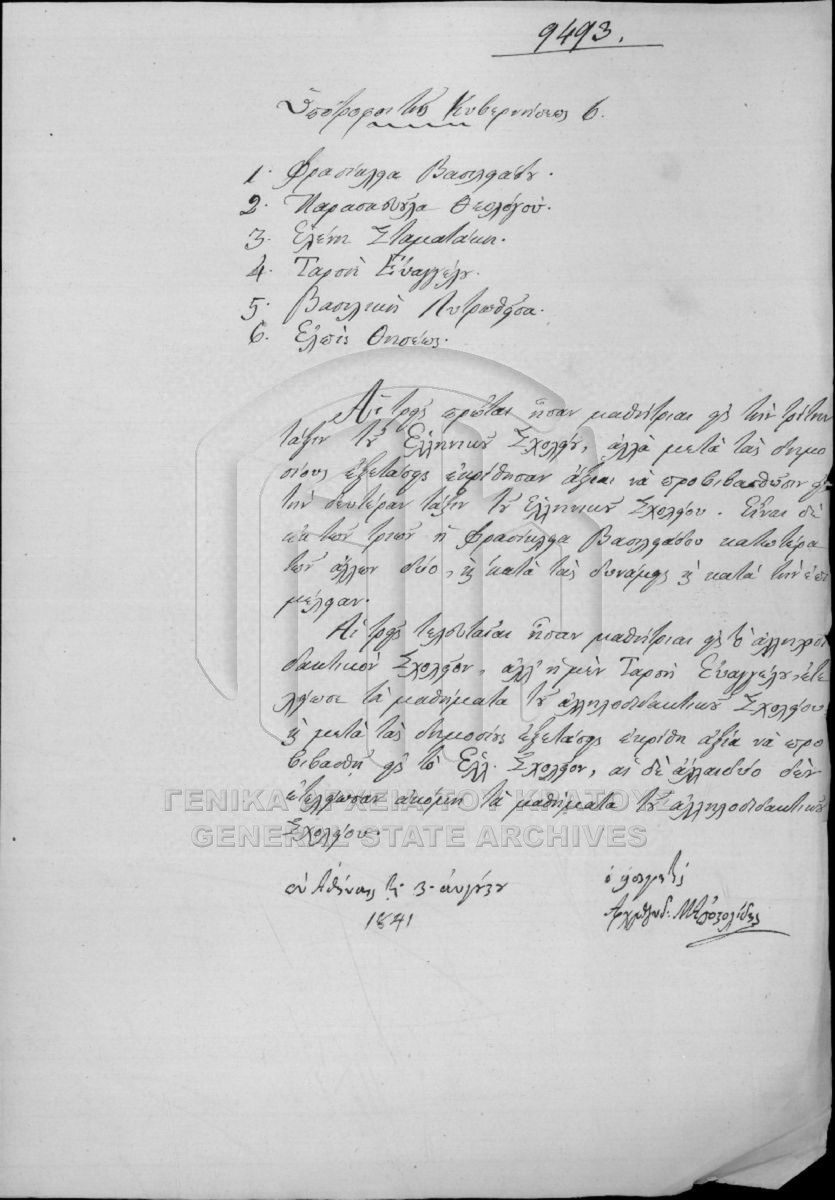 9493.
Ὑπότροφοι τῆς Κυβερνήσεως 6.
1. Φρασίκλεια Βασιλειάδου.
2. Παρασκευούλα Θεολόγου.
3. Ἑλένη Σταματάκη.
4. Ταρσὴ Εὐαγγέλου.
5. Βασιλικὴ
6. Ἐλπὶς Θησέως.
Αἱ τρεῖς πρῶται ἦσαν μαθήτριαι εἰς τὴν τρίτην
τάξιν τοῦ Ἑλληνικοῦ Σχολείου, ἀλλὰ μετὰ τὰς δημο
σίους ἐξετάσεις ἐκρίθησαν ἄξιαι νὰ προβιβασθῶσιν εἰς
τὴν δευτέραν τάξιν τοῦ Ἑλληνικοῦ Σχολείου. Εἶναι δὲ
ἐκ τῶν τριῶν ἡ Φρασίκλεια Βασιλειάδου κατωτέρα
τῶν ἄλλων δύο, καὶ κατὰ τὰς δυνάμεις καὶ κατὰ τὴν ἐπι
μέλειαν.
Αἱ τρεῖς τελευταῖαι ἦσαν μαθήτριαι εἰς τὸ ἀλληλοδι
δακτικὸν Σχολεῖον, ἀλλ' ἡ μὲν Ταρσὴ Εὐαγγέλου, ἐτε
λείωσε τὰ μαθήματα τοῦ ἀλληλοδιδακτικοῦ Σχολείου
καὶ μετὰ τὰς δημοσίους ἐξετάσεις ἐκρίθη ἀξία νὰ προ
βιβασθῇ εἰς τὸ Ἑλλ. Σχολεῖον, αἱ δὲ ἄλλαι δύο δὲν
ἐτελείωσαν ἀκόμη τὰ μαθήματα τοῦ ἀλληλοδιδακτικοῦ
Σχολείου.
ἐν Ἀθήναις τῇ 3 αὐγούστου
1841
ΓΕΝΙΚΑ ΑΡΧΕΙΑ ΤΟΥ ΚΡΑΤΟΥΣ
GENERAL STATE ARCHIVES